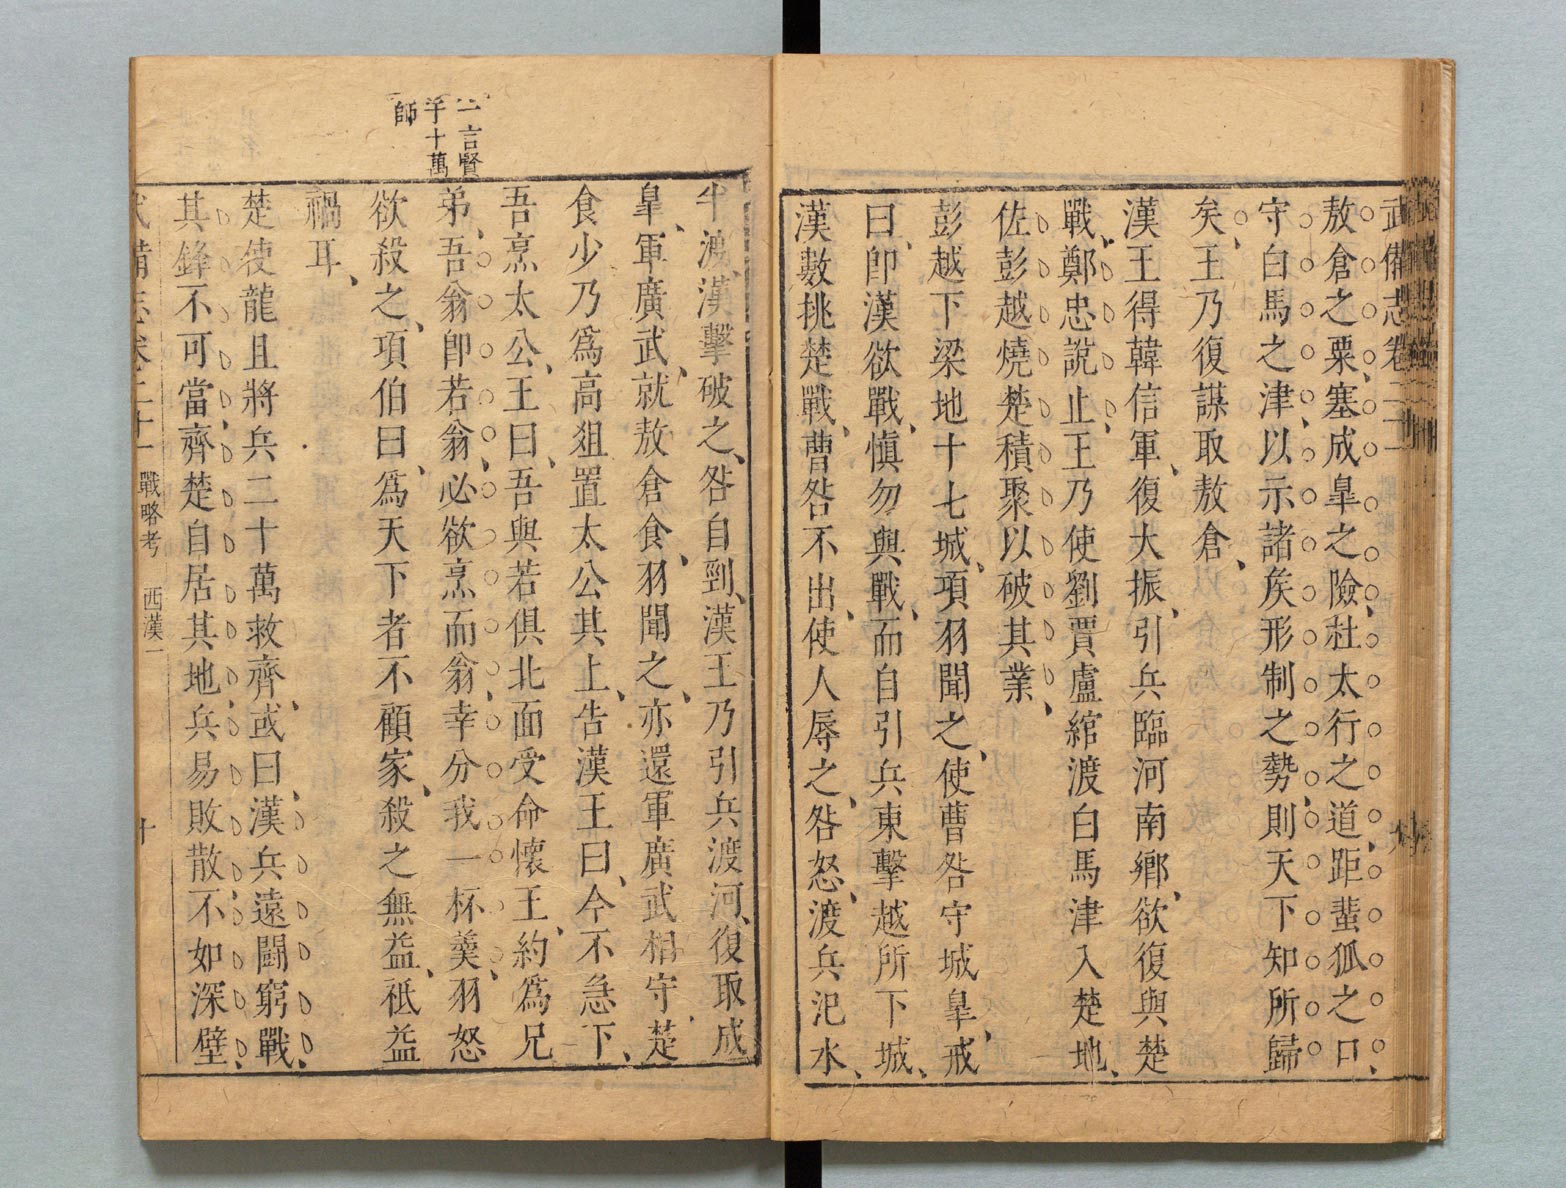 武備志卷二十一
敖倉之粟塞成臯之險杜太行之道距蜚狐之口
守白馬之津以示諸矦形制之勢則天下知所歸
矣王乃復謀取敖倉
漢王得韓信軍復大振引兵臨河南鄉欲復與楚
戰鄭忠說止王乃使劉賈盧綰渡白馬津入楚地
佐彭越燒楚積聚以破其業
彭越下梁地十七城項羽聞之使曹咎守城臯戒
曰卽漢欲戰愼勿與戰而自引兵東擊越所下城
漢數挑楚戰曹咎不出使人辱之咎怒渡兵汜水
半渡漢擊破之咎自剄漢王乃引兵渡河復取成
臯軍廣武就敖倉食羽聞之亦還軍廣武相守楚
食少乃爲高俎置太公其上告漢王曰今不急下
吾烹太公王曰吾與若俱北面受命懷王約爲兄
弟吾翁卽若翁必欲烹而翁幸分我一杯羹羽怒
欲殺之項伯曰爲天下者不顧家殺之無益祇益
禍耳
楚使龍且將兵二十萬救齊或曰漢兵遠鬭窮戰
其鋒不可當齊楚自居其地兵易敗散不如深壁
武備志卷二十一 戰略考 西漢一 十
一言賢
于十萬
師